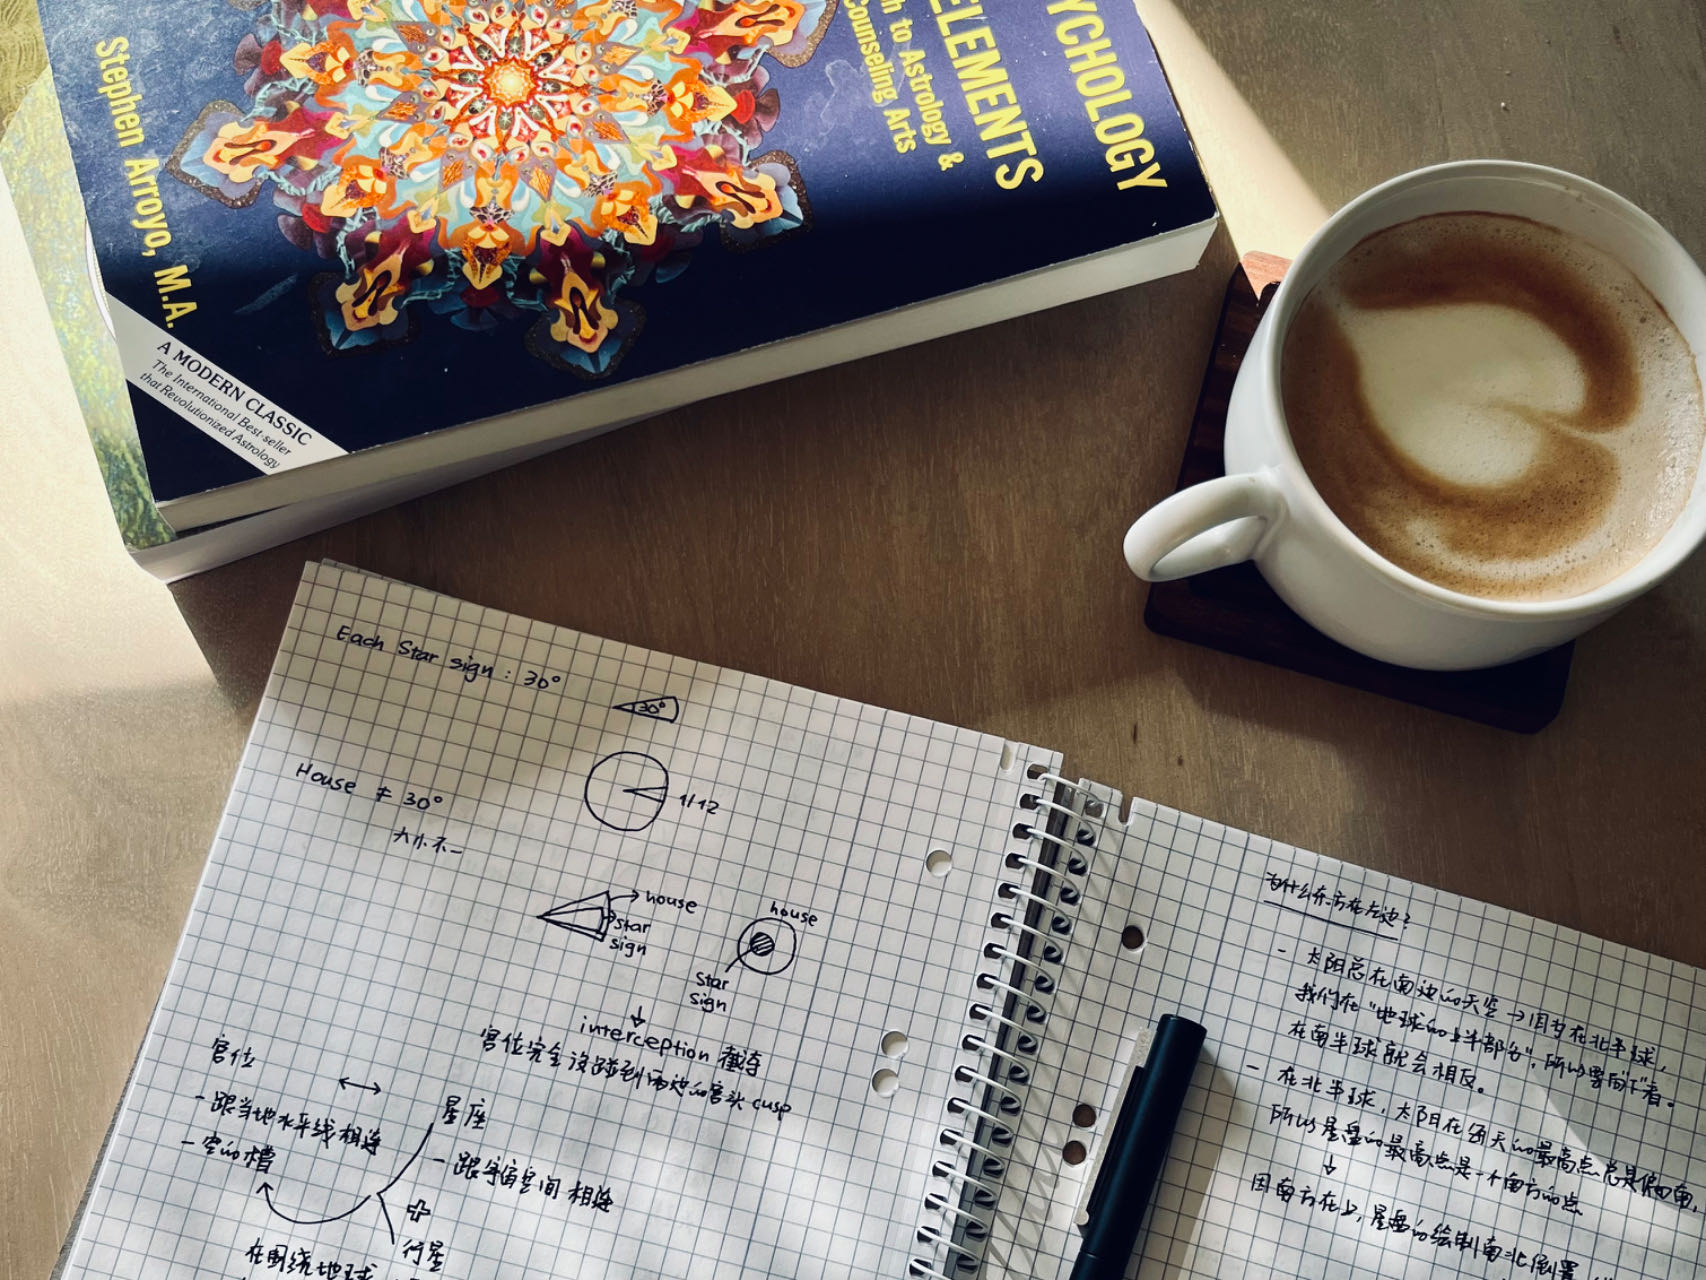 YCHOLOGY
ELEMENTS
h to Astrology &
Counseling Arts
Stephen Arroyo, M.A.
A MODERN CLASSIC
The International Best-seller
that Revolutionized Astrology
Each Star sign : 30°
30°
House ≠ 30°
大小不一
1/12
house
star
sign
house
Star
sign
interception 截夺
宫位完全没碰到两边的宫头 cusp
宫位
- 跟当地水平线相连
- 空的槽
星座
- 跟宇宙空间相连
行星
在围绕地球
为什么东方在左边？
- 太阳总在南边的天空 → 因为在北半球，
我们在“地球的上半部分”，所以要向“下”看。
在南半球就会相反。
- 在北半球，太阳在每天的最高点总是偏南，
所以星盘的最高点是一个南方的点
因南方在上，星盘的绘制南北倒置